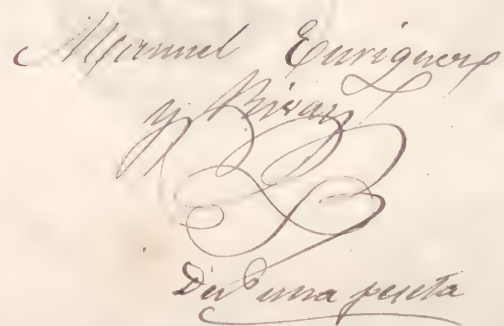 Manuel Enriquez
y Rivas
Dió una peseta